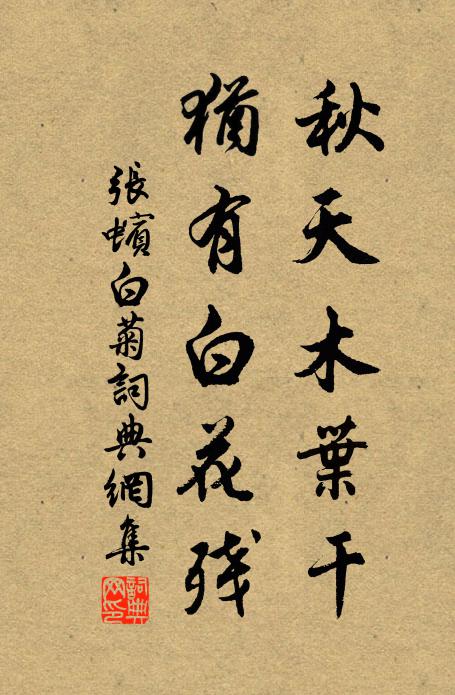 秋天木葉干
猶有白花残
張蠙白菊詞典網集
詞典网印